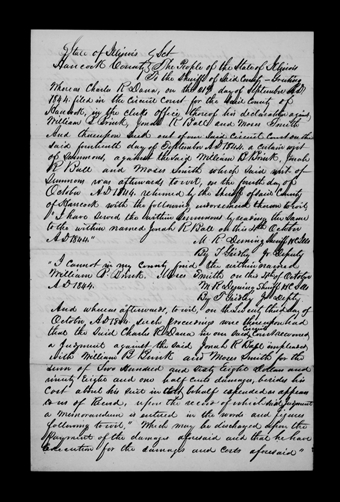 State of Illinois } Sct
Hancock County } The People of the State of Illinois
To the Sheriff of Said County – Greeting
Whereas Charles R. Dana, on the day of September AD
1844. filed in the Circuit Court for the Said County of
Hancock, in the Clerks office thereof his declaration against
William B Brink, Jonah R Ball and Moses Smith
And thereupon Sued out of our Said Circuit Court on the
said fourteenth day of September AD 1844. a certain writ
of Summons, against the Said William B Brink, Jonah
R Ball and Moses Smith which Said writ of
Summons was afterwards to wit, on the fourth day of
October AD 1844 returned by the Sheriff of Said County
of Hancock with the following endorsement thereon to wit,
"I have served the within Summons by reading the Same
to the within named Jonah R Ball on this October
AD 1844."
M R Deming Sheriff HC Ills
By T Deputy
"I cannot in my County find the within named
William B Brink. Moses Smith on this 4th of October
AD 1844.
M R Deming Sheriff HC Ills
By T Deputy
And whereas afterwards, to wit, on the day of
October AD 1844, Such proceedings were thereupon had
that the Said Charles R Dana in our Said Circuit Court recovered
a Judgment against the Said Jonah R Ball impleaded
with William B Brink and Moses Smith for the
Sum of Two Hundred and Eight Dollars and
ninety Eight and one half cents damages, besides his
Cost about his Suit in that behalf expended as appears
to us of Record, upon the record of which said Judgment
a memorandum is entered in the words and figures
following to wit, "Which may be discharged upon the
Payment of the damages aforesaid and that he have
Execution for the damages and Costs aforesaid"